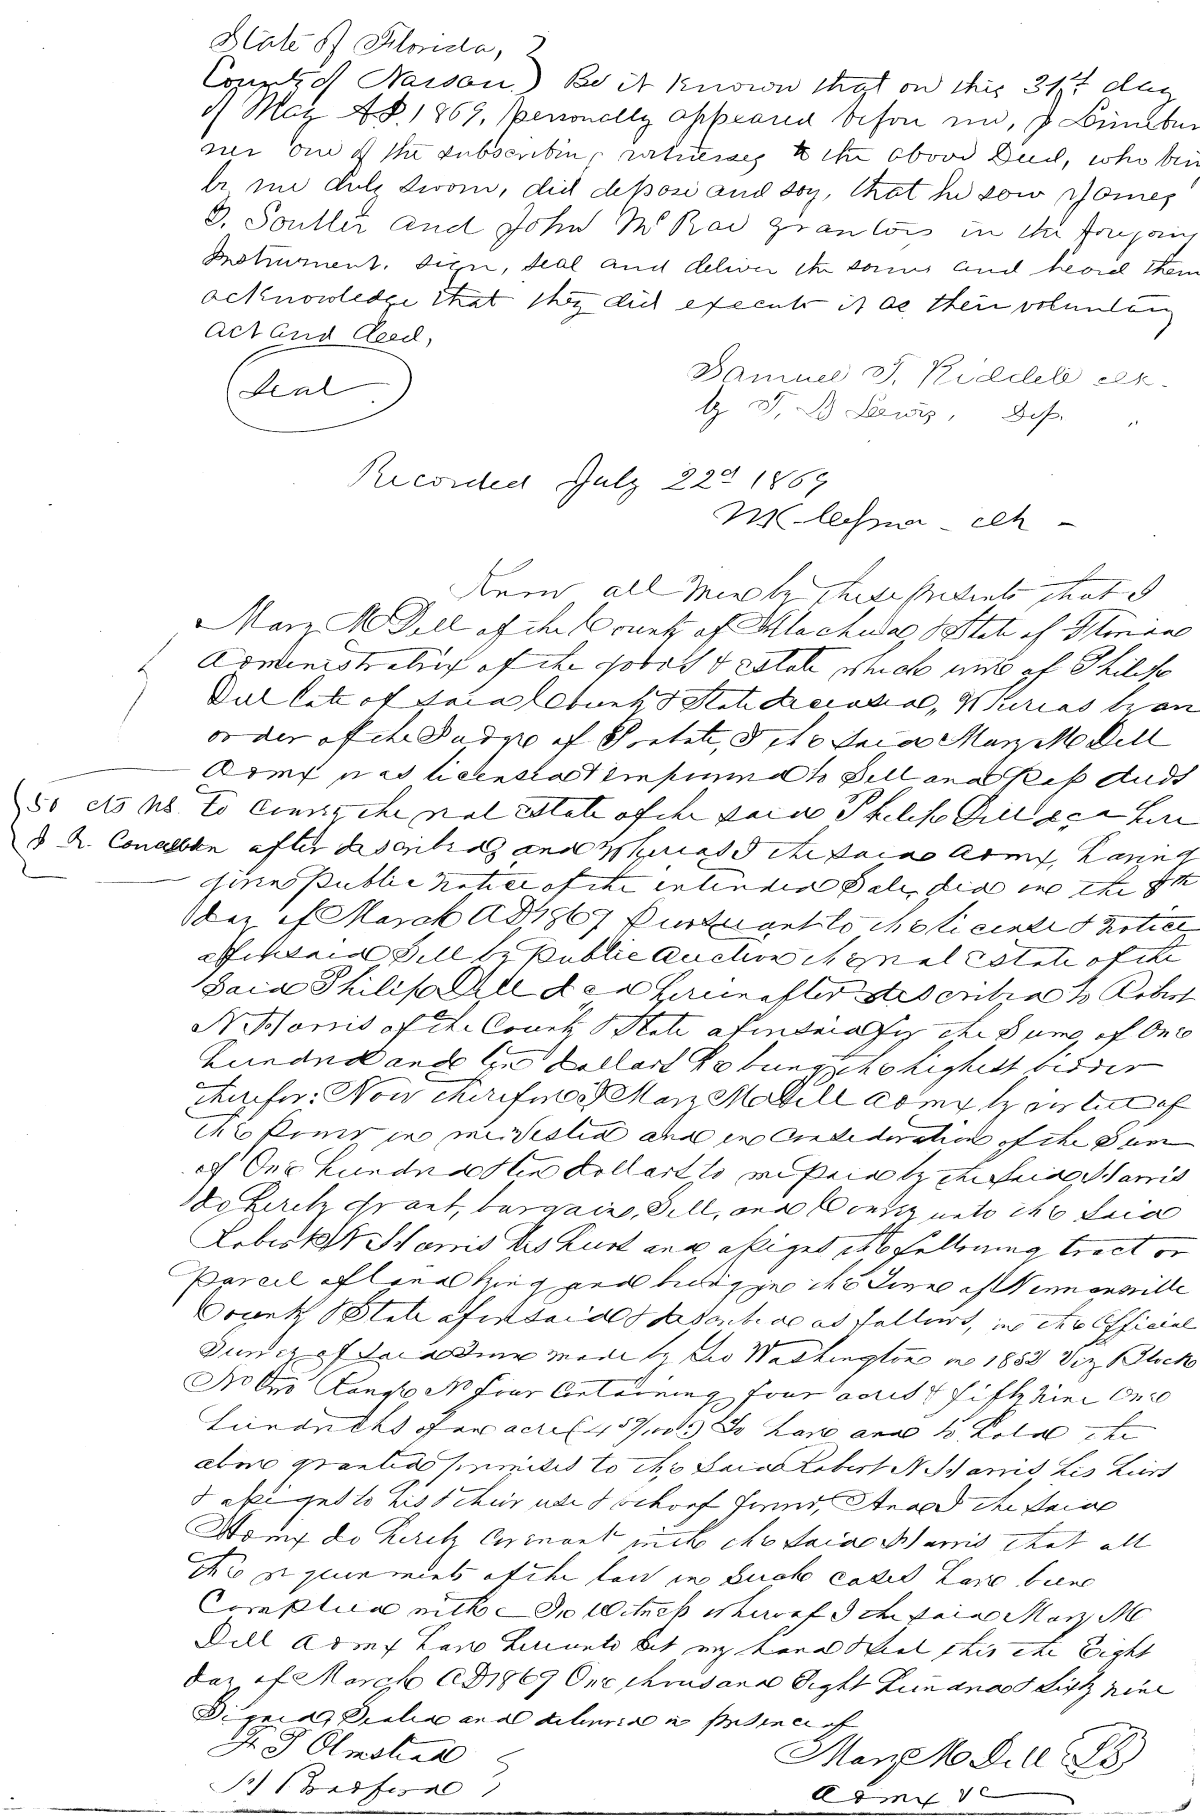 State of Florida,
County of Nassau) Be it known that on this 31st day
of May A.D. 1869, personally appeared before me, J Limebur
ner one of the subscribing witnesses to the above Deed, who bein
by me duly sworn, did depose and say, that he saw James
T. Soutter and John McRae grantors in the foregoing
Instrument, sign, seal and deliver the same and heard them
acknowledge that they did execute it as their voluntary
act and deed,
Seal
Samuel T. Riddell clk.
by T. D Lewis, Dep. "
Recorded July 22d 1869
clk -
Know all Men by these Presents that I
Mary M Dell of the County of Alachua & State of Florida
Administratrix of the goods & estate which were of Philip
Dell late of said County & State deceased, Whereas by an
order of the Judge of Probate, I the said Mary M Dell
Admx was licensed & empowered to Sell and pass deeds
50 cts US to convey the real estate of the said Philip Dell dec'd here
I. R. after described, and Whereas I the said Admx, having
given public notice of the intended Sale, did on the 8th
day of March AD 1869 pursuant to the license & notice
aforesaid Sell by public Auction the real estate of the
said Philip Dell dec'd hereinafter described to Robert
N Harris of the County & State aforesaid for the Sum of One
hundred and ten dollars he being the highest bidder
therefor: Now therefore I Mary M Dell Admx by virtue of
the power in me vested and in consideration of the Sum
of One hundred & ten dollars to me paid by the said Harris
do hereby grant, bargain, Sell, and Convey unto the said
Robert N Harris his heirs and assigns the following tract or
parcel of land lying and being in the Town of Newnansville
County & State aforesaid & described as follows, in the Official
Survey of said Town made by Geo Washington in 1852 Viz Block
No Two Range No Four Containing four acres & fifty nine One
hundredths of an acre (4 59/100.) To have and to hold the
above granted premises to the said Robert N Harris, his heirs
& assigns to his & their use & behoof forever, And I the said
Admx do hereby Covenant with the said Harris that all
the requirements of the law in such cases have been
Complied with - In Witness whereof I the said Mary M
Dell Admx have hereunto set my hand & seal this the Eight
day of March AD 1869 One thousand Eight hundred & Sixty nine
Signed, Sealed and delivered in presence of
F. J Olmstead
Bradford
Mary M Dell LS
Admx &c